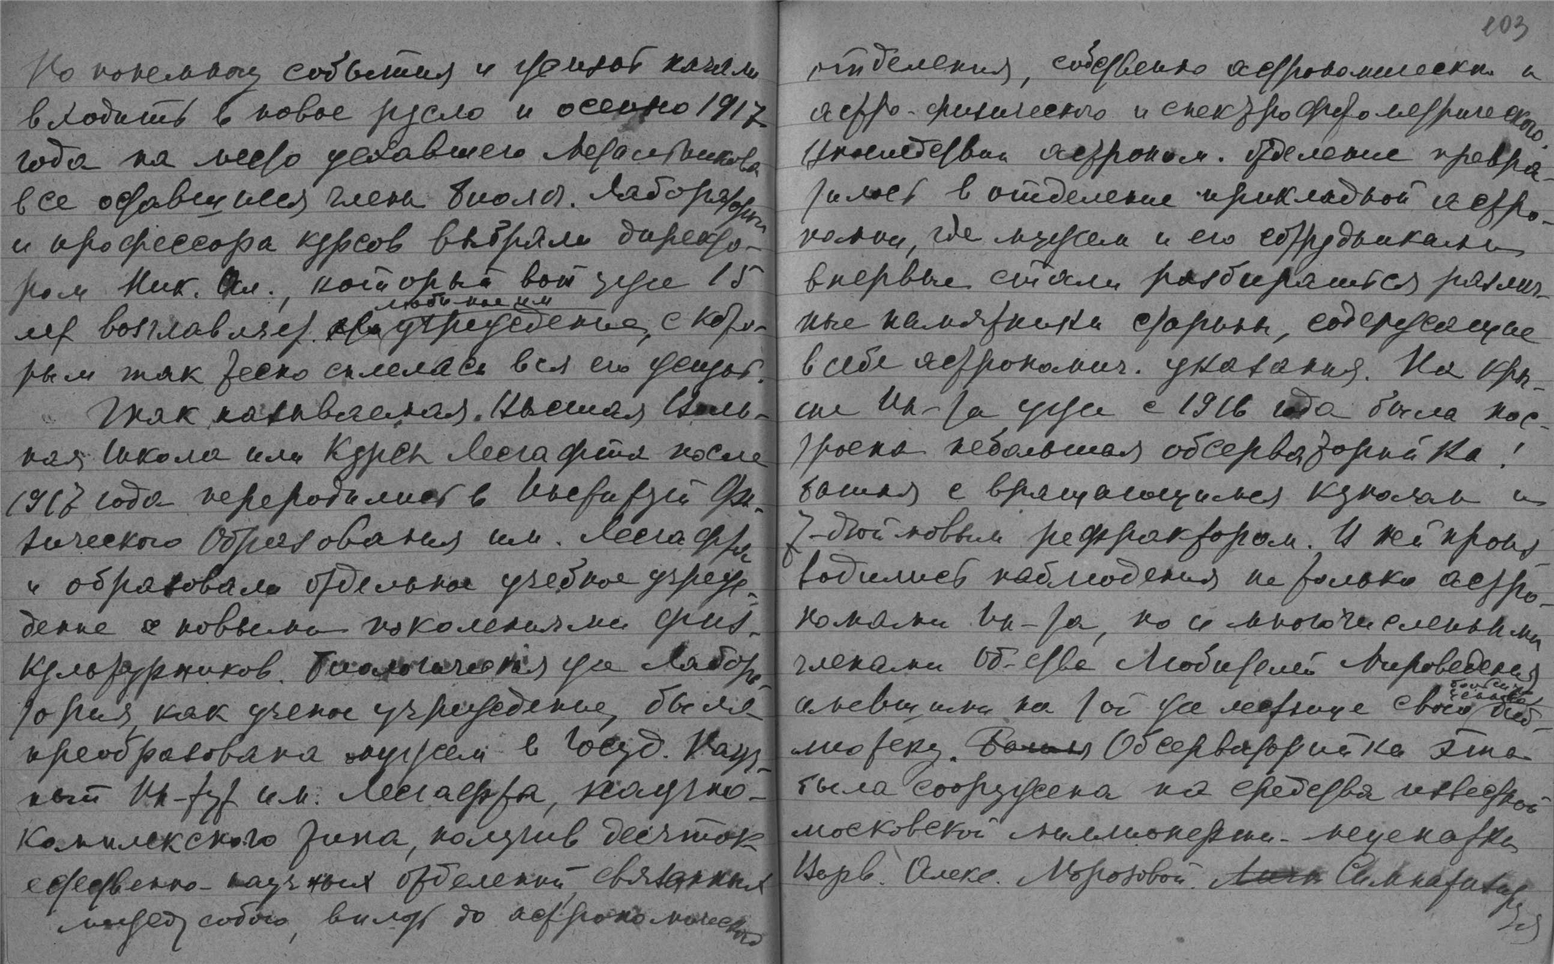 Но понемногу события и жизнь начали
входить в новое русло и осенью 1917
года на место уехавшего Метальникова
все оставшиеся члены биолог. Лаборатории
и профессора курсов выбрали директо-
ром Ник. Ал., который вот уже 15
лет возглавляет любимое им учреждение, с кото-
рым так тесно сплелась вся его жизнь.
Так называемая Высшая Воль-
ная Школа или Курсы Лесгафта после
1917 года переродились в Институт Фи-
зического Образования им. Лесгафта
и образовали отдельное учебное учреж-
дение с новыми поколениями физ-
культурников. Биологическая же Лабора-
тория, как ученое учреждение, была
преобразована мужем в Госуд. Науч-
ный Ин-тут им. Лесгафта, научно-
комплексного типа, получив десяток
естественно-научных отделений, связанных
между собою, вплоть до астрономического
103
отделения, собственно астрономически и
астро-физического и спектрофотометрического.
Впоследствии астроном. отделение превра-
тилось в отделение прикладной астро-
номии, где мужем и его сотрудниками
впервые стали разбираться различ-
ные памятники старины, содержащие
в себе астрономич. указания. На кры-
ше Ин-та уже с 1916 года была пос-
троена небольшая обсерваторийка!
башня с вращающимся куполом и
7-дюймовым рефрактором. В ней произ
водились наблюдения не только астро-
номами Ин-та, но и многочисленными
членами Об-ства Любителей Мироведения
имевшими на той же лестнице свою биб-
лиотеку. Башня Обсерваторийка эта
была сооружена на средства известной
московской миллионерши-меценатки
Варв. Алекс. Морозовой. Симпатизируя